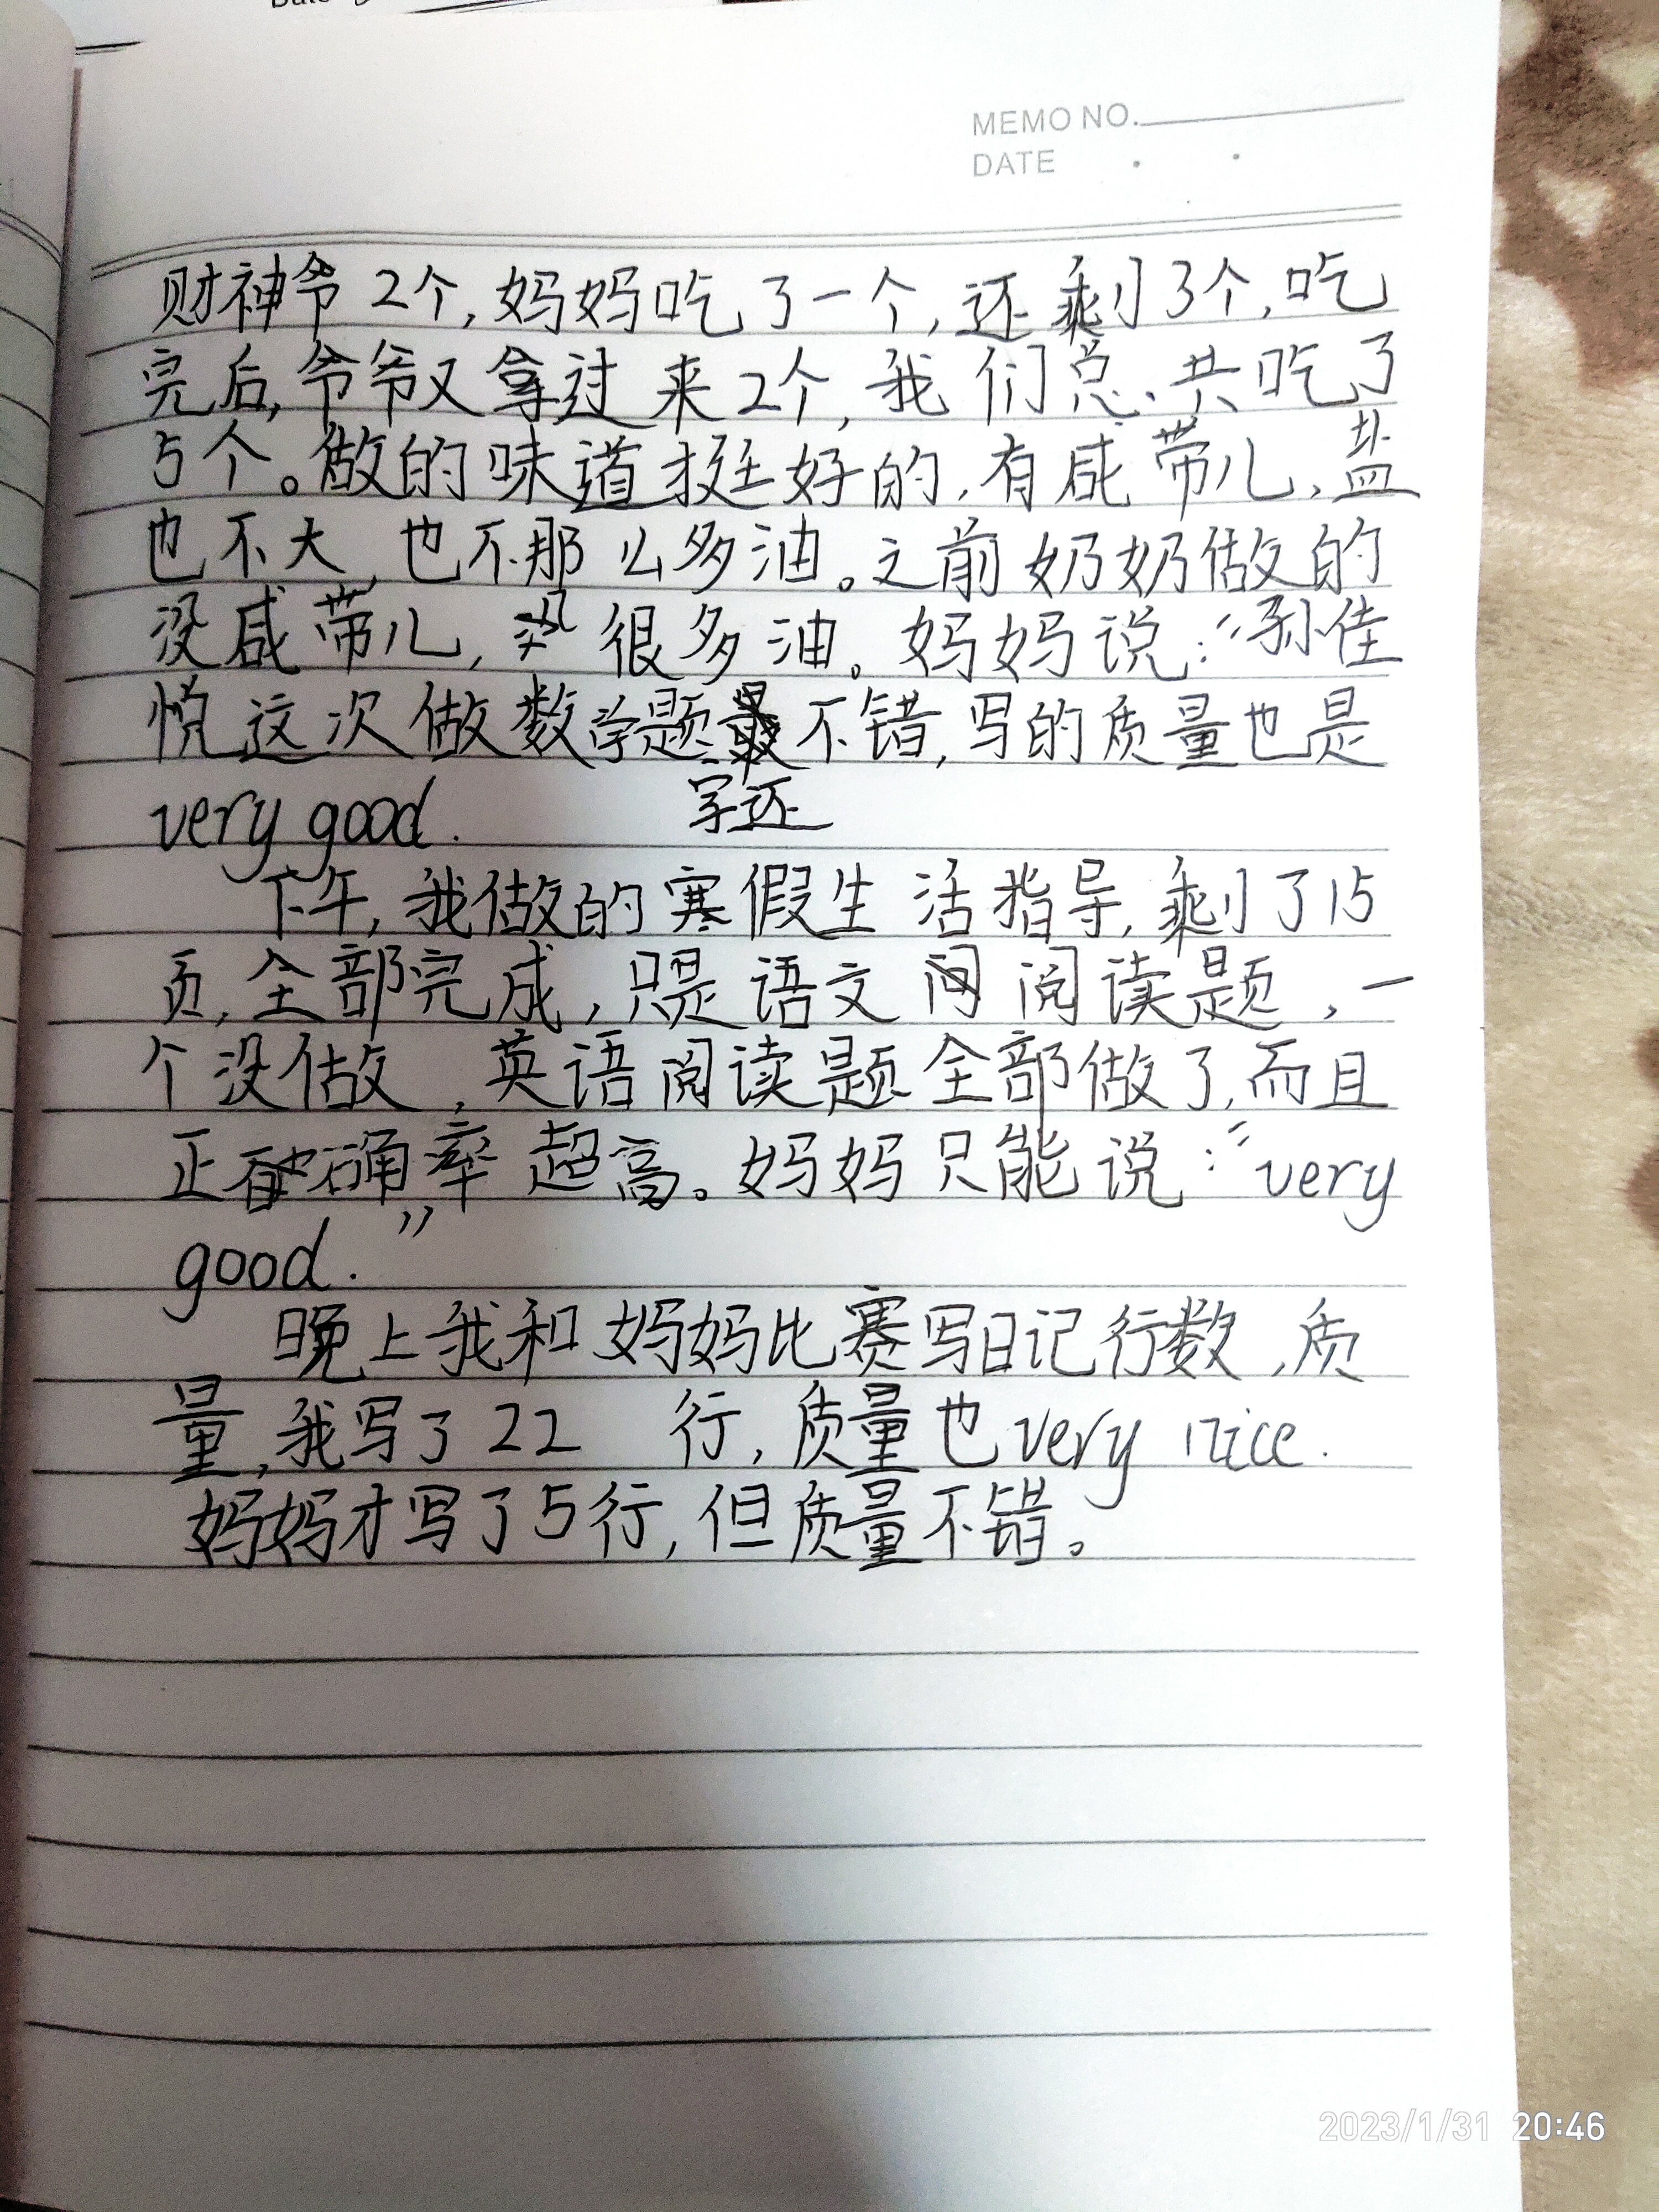 MEMO NO.
DATE
财神爷2个,妈妈吃了一个,还剩了3个,吃
完后,爷爷又拿过来2个,我们总共吃了
5个。做的味道挺好的,有咸带儿,盐
也不大,也不那么多油。之前奶奶做的
没咸带儿,很多油。妈妈说:“孙佳
悦这次做数学题不错,写的质量也是
字还
very good.
下午,我做的寒假生活指导,剩了15
页,全部完成,只是语文阅读题,一
个没做,英语阅读题全部做了,而且
正确率超高。妈妈只能说:“very
good.”
晚上我和妈妈比赛写日记行数,质
量,我写了22 行,质量也very nice.
妈妈才写了5行,但质量不错。
2023/1/31 20:46